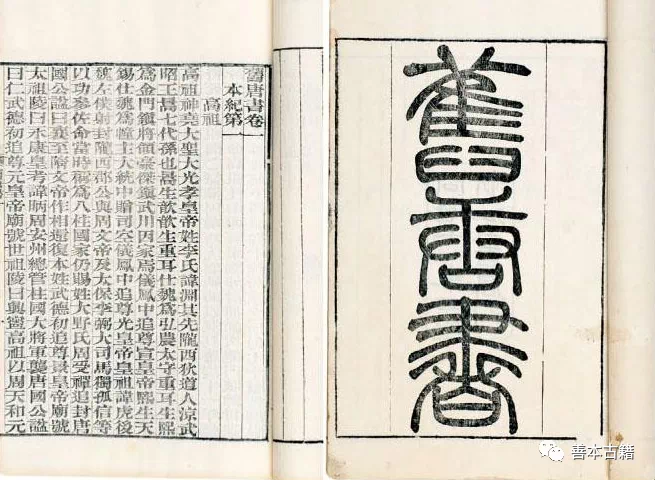 舊唐書
舊唐書卷一
本紀第一
高祖
高祖神堯大聖大光孝皇帝姓李氏諱淵其先隴西狄道人涼武
昭王暠七代孫也暠生歆歆生重耳仕魏為弘農太守重耳生熙
為金門鎮將領豪傑鎮武川因家焉儀鳳中追尊宣皇帝熙生天
錫仕魏為幢主大統中贈司空儀鳳中追尊光皇帝皇祖諱虎後
魏左僕射封隴西郡公與周文帝及太保李弼大司馬獨孤信等
以功參佐命當時稱為八柱國家仍賜姓大野氏周受禪追封唐
國公謚曰襄至隋文帝作相還復本姓武德初追尊景皇帝廟號
太祖陵曰永康皇考諱昞周安州總管柱國大將軍襲唐國公謚
曰仁武德初追尊元皇帝廟號世祖陵曰興寧高祖以周天和元
善本古籍